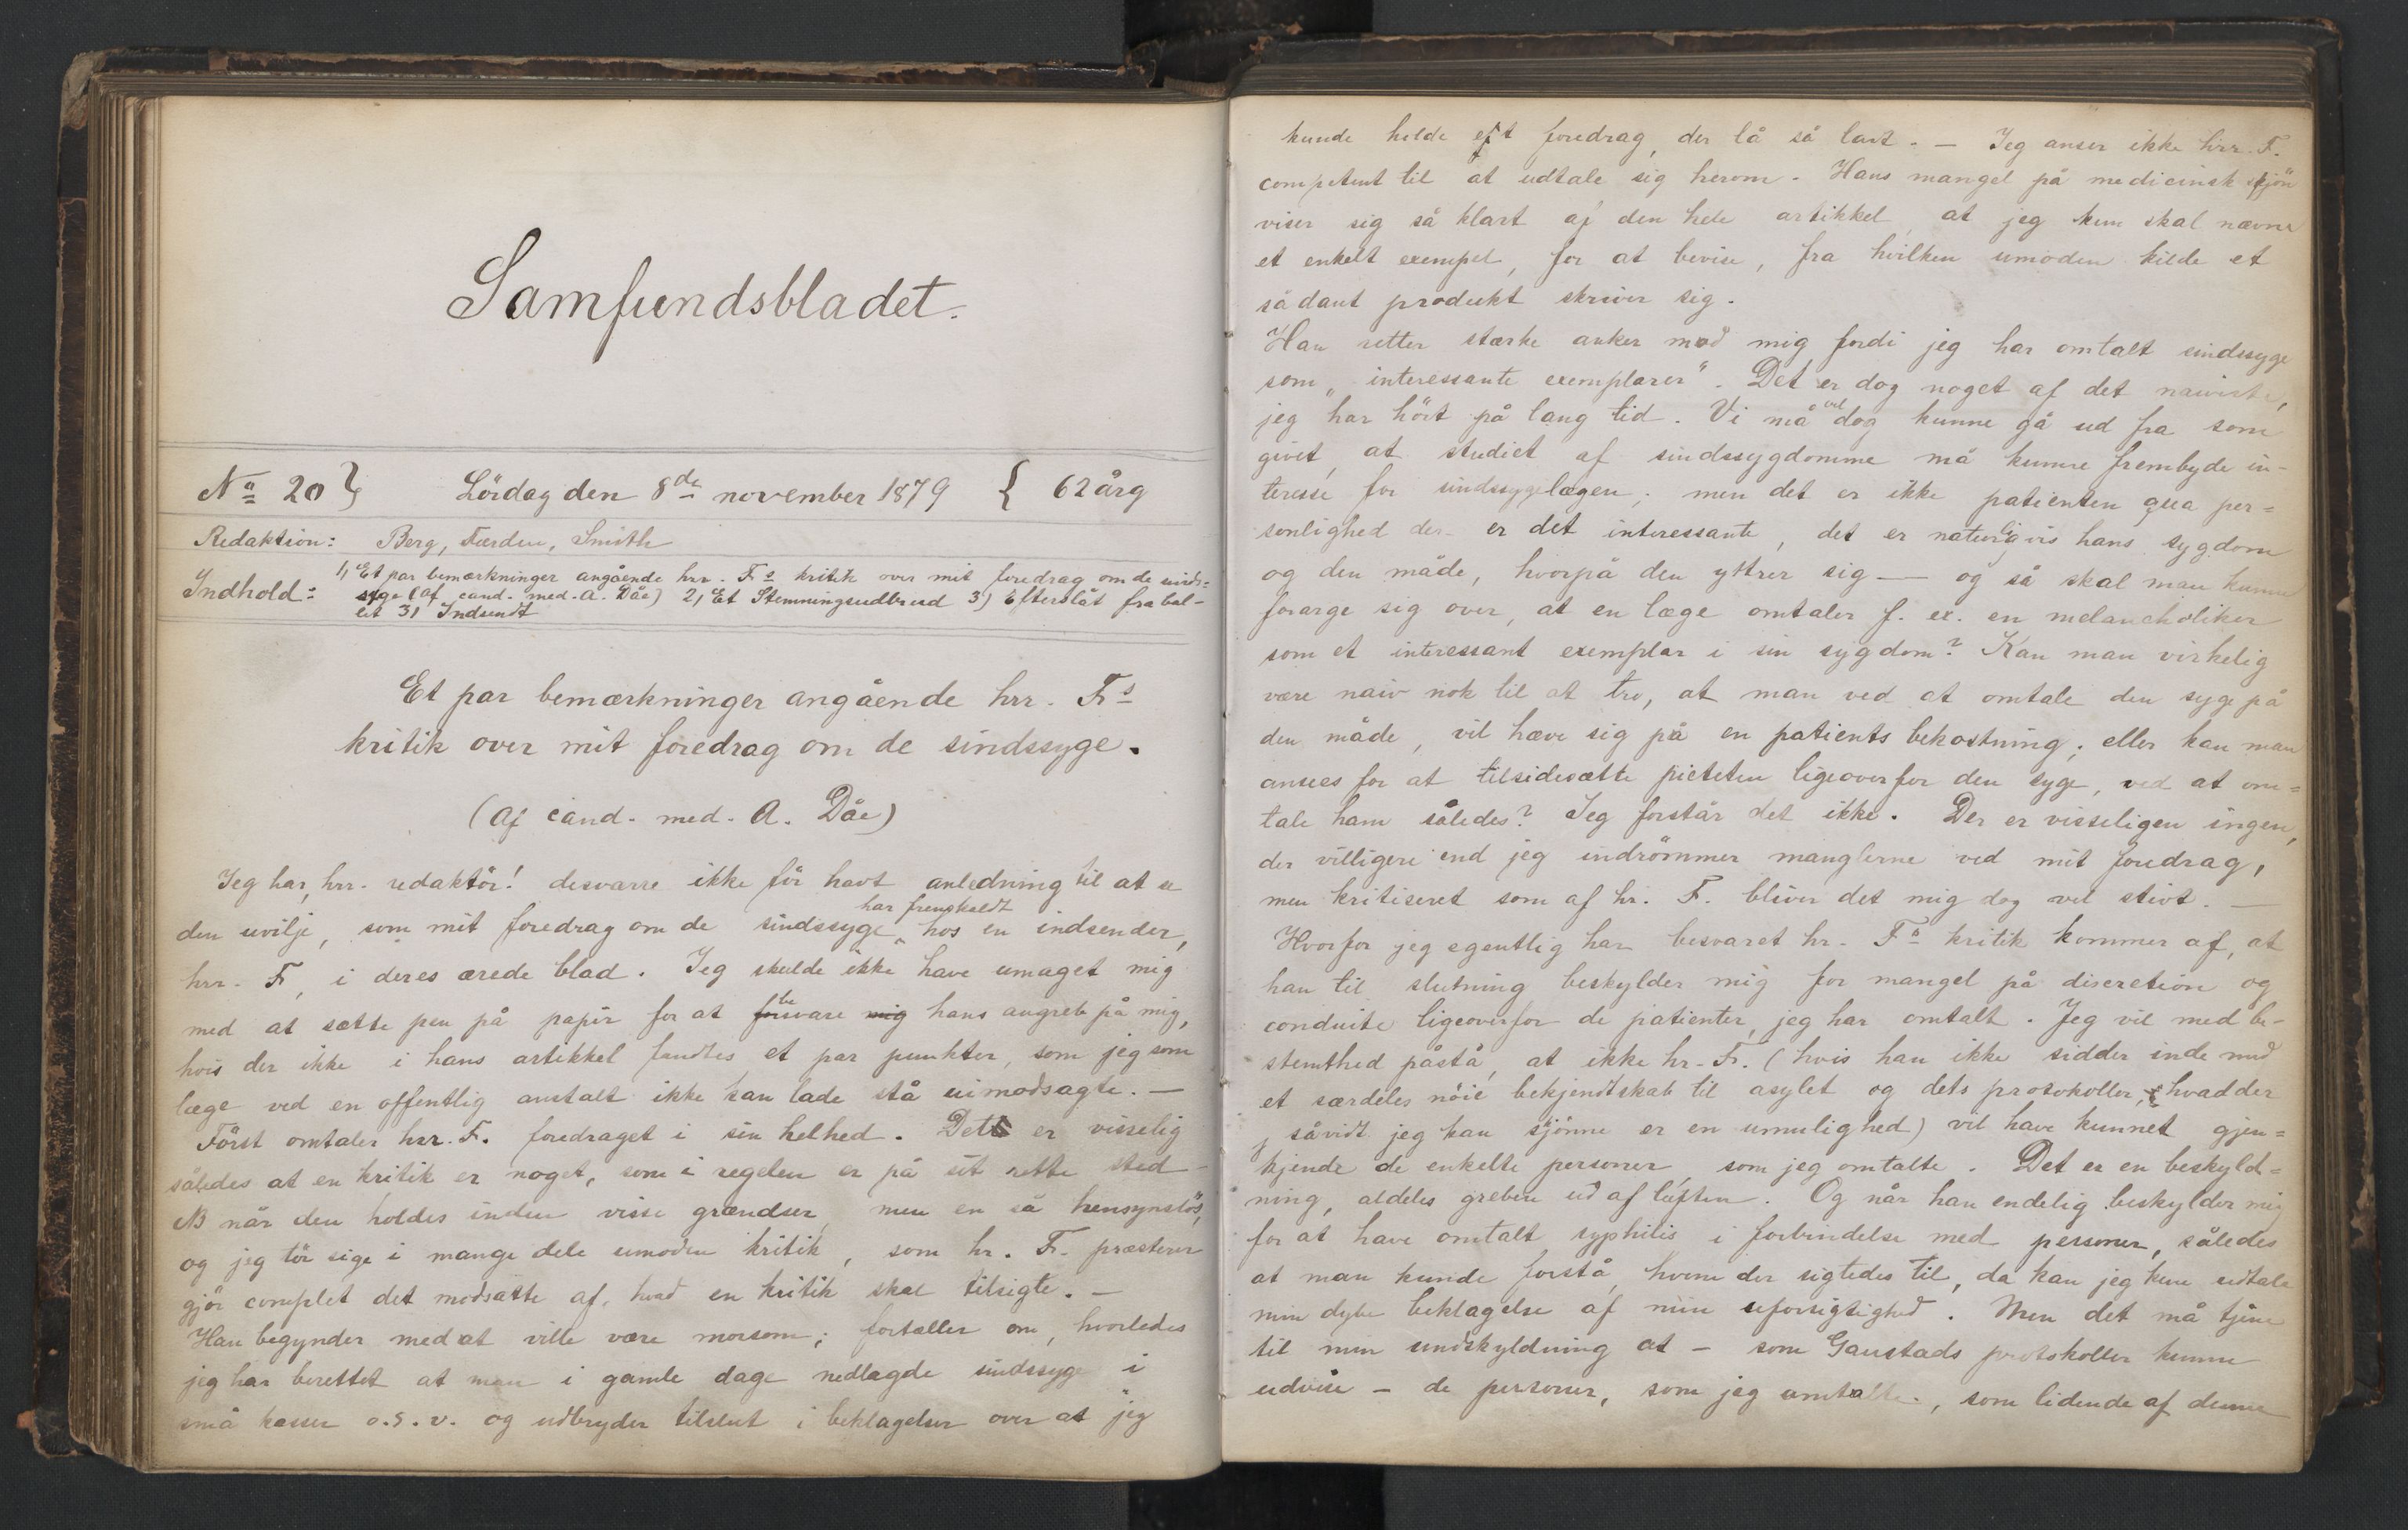 Samfundsbladet.
No 20 } Lördag den 8de november 1879 { 62 årg
Redaktion: Berg, Færden, Smith
Indhold: 1, Et par bemærkninger angående hrr. Fs kritik over mit foredrag om de sinds=
syge (af cand. med. A. Dåe) 2, Et Stemningsudbrud 3) Efterslåt fra bal-
let 3) Indsendt
Et par bemærkninger angående hrr. Fs
kritik over mit foredrag om de sindssyge.
(Af cand. med. A. Dåe)
Jeg har, hrr. redaktör! desværre ikke för havt anledning til at se
den uvilje, som mit foredrag om de sindssyge har fremkaldt hos en indsender,
hrr. F, i deres ærede blad. Jeg skulde ikke have umaget mig
med at sætte pen på papir for at besvare hans angreb på mig,
hvis der ikke i hans artikkel fandtes et par punkter, som jeg som
læge ved en offentlig anstalt ikke kan lade stå uimodsagte. —
Först omtaler hrr. F. foredraget i sin helhed. Det er visselig
således at en kritik er noget, som i regelen er på sit rette sted -
NB når den holdes inden visse grændser, men en så hensynslös,
og jeg tör sige i mange dele umoden kritik, som hr. F. præsterer
gjör complet det modsatte af, hvad en kritik skal tilsigte. —
Han begynder med at ville være morsom; fortæller om, hvorledes
jeg har berettet at man i gamle dage nedlagde sindssyge i
små kasser o.s.v. og udbryder tilslut i beklagelser over at jeg
kunde holde et foredrag, der lå så lavt. — Jeg anser ikke hrr. F.
competent til at udtale sig herom. Hans mangel på medicinsk skjön
viser sig så klart af den hele artikkel, at jeg kun skal nævne
et enkelt exempel, for at bevise, fra hvilken umoden kilde et
sådant produkt skriver sig.
Han retter stærke anker mod mig fordi jeg har omtalt sindssyge
som "interessante exemplarer". Det er dog noget af det naiveste,
jeg har hört på lang tid. Vi må vel dog kunne gå ud fra som
givet, at studiet af sindssygdomme må kunne frembyde in-
teresse for sindssygelægen; men det er ikke patienten qua per=
sonlighed der er det interessante, det er naturligvis hans sygdom
og den måde, hvorpå den yttrer sig — og så skal man kunne
forarge sig over, at en læge omtaler f. ex. en melancholiker
som et interessant exemplar i sin sygdom? Kan man virkelig
være naiv nok til at tro, at man ved at omtale den syge på
den måde, vil hæve sig på en patients bekostning; eller kan man
ansees for at tilsidesætte pieteten ligeoverfor den syge, ved at om=
tale ham således? Jeg forstår det ikke. Der er visseligen ingen,
der villigere end jeg indrömmer manglerne ved mit foredrag,
men kritiseret som af hr. F. bliver det mig dog vel stivt. —
Hvorfor jeg egentlig har besvaret hr. Fs kritik kommer af, at
han til slutning beskylder mig for mangel på discretion og
conduite ligeoverfor de patienter, jeg har omtalt. Jeg vil med be-
stemthed påstå, at ikke hr. F. (hvis han ikke sidder inde med
et særdeles nöie bekjendtskab til asylet og dets protokoller, hvad der
såvidt jeg kan skjönne er en umulighed) vil have kunnet gjen=
kjende de enkelte personer, som jeg omtalte. Det er en beskyld=
ning, aldeles greben ud af luften. Og når han endelig beskylder mig
for at have omtalt syphilis i forbindelse med personer, således
at man kunde forstå, hvem der sigtedes til, da kan jeg kun udtale
min dybe beklagelse af min uforsigtighed. Men det må tjene
til min undskyldning at – som Gaustads protokoller kunne
udvise – de personer, som jeg omtalte, som lidende af denne